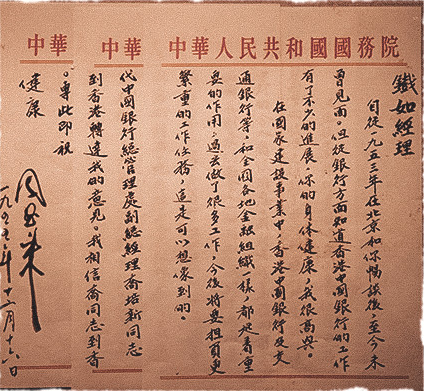 中華人民共和國國務院
鐵如經理
自從一九五三年在北京和你暢談後，至今未
曾見面，但從銀行方面知道香港中國銀行的工作
有了不少的進展，你的身体健康，我很高興。
在國家建設事業中，香港中國銀行及交
通銀行等，和全國各地金融組織一樣，都起着重
要的作用，過去做了很多工作，今後將要担負更
繁重的工作任務，這是可以想像到的。
中華
代中國銀行總管理處副總經理喬培新同志
到香港轉達我的意見。我相信喬同志到香
中華
。專此即祝
健康
周恩來
一九五年十二月十六日